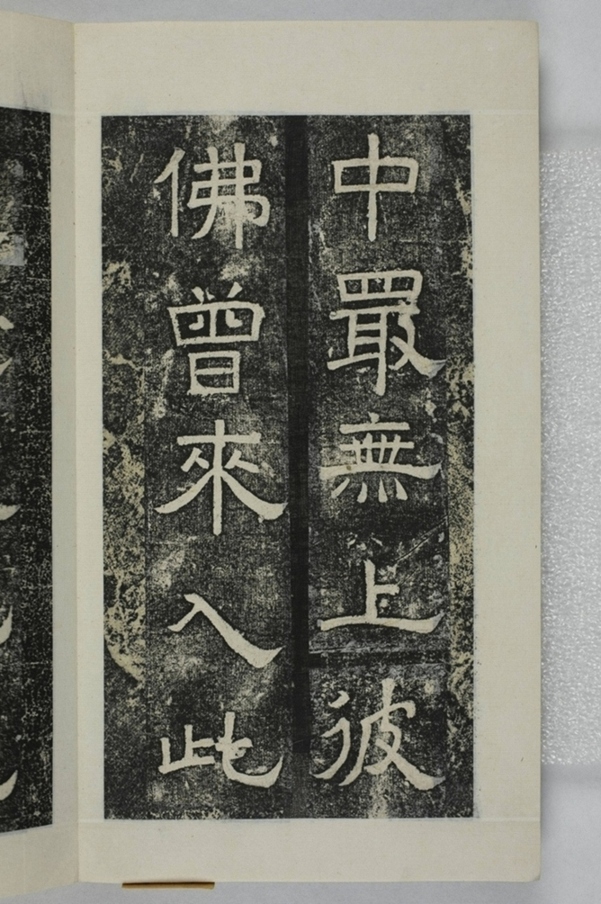 中冣無上彼
佛曾來入此